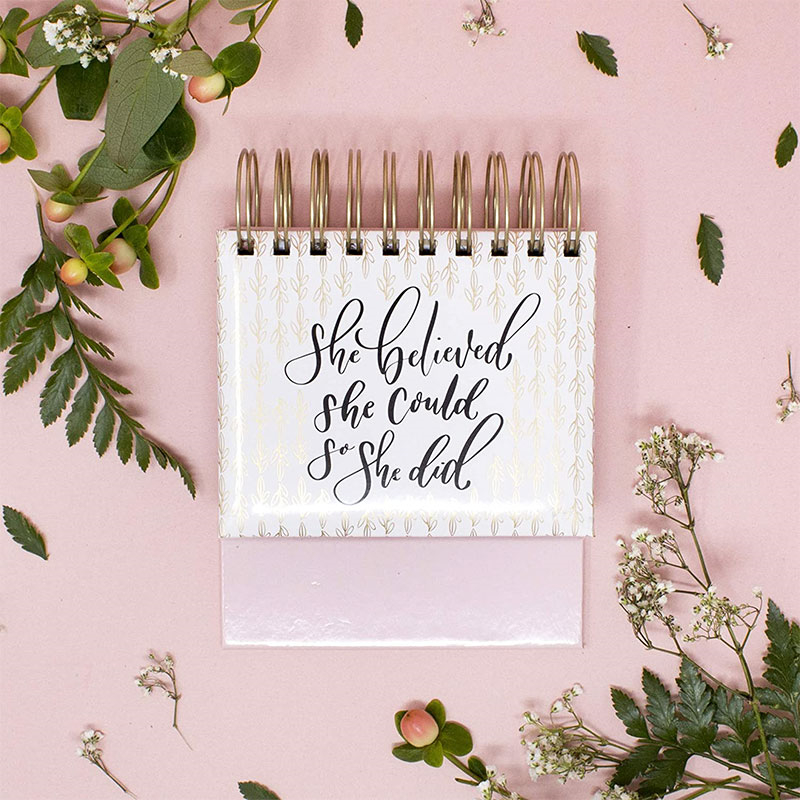 She believed
she could
so she did